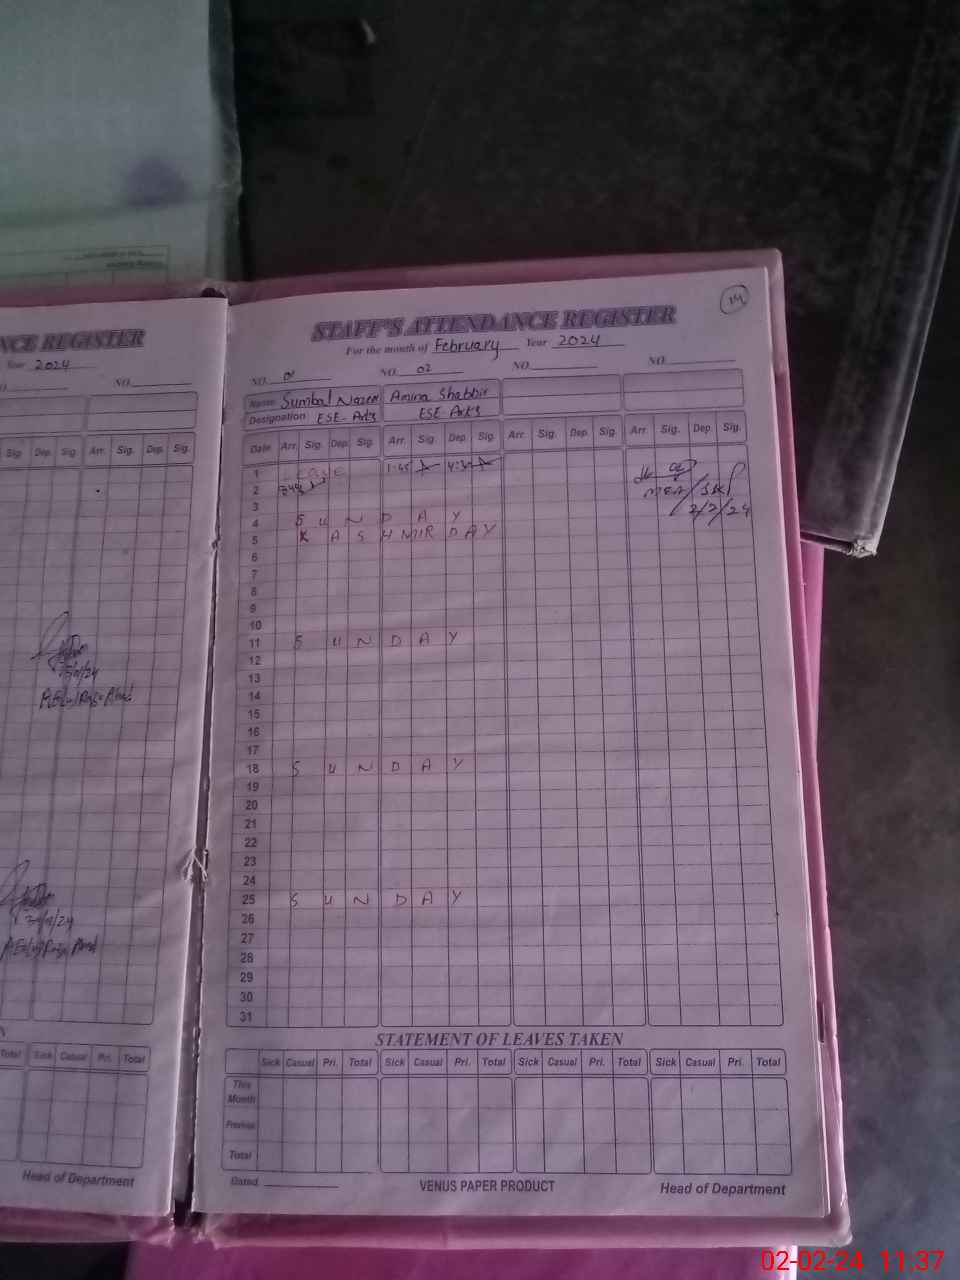 NCE REGISTER
Year 2024
NO.
Sig. Dep. Sig. Arr. Sig. Dep. Sig.
Total Sick Casual Pri. Total
Head of Department
14
STAFF'S ATTENDANCE REGISTER
For the month of February Year 2024
NO. 01 NO. 02 NO. NO.
Name Sumbal Nazeer Amina Shabbir
Designation ESE-Arts ESE-Arts
Date Arr. Sig. Dep. Sig. Arr. Sig. Dep. Sig. Arr. Sig. Dep. Sig. Arr. Sig. Dep. Sig.
1
2
3
2/2/24
4 SUNDAY
5 KASHMIR DAY
6
7
8
9
10
11 SUNDAY
12
13
14
15
16
17
18 SUNDAY
19
20
21
22
23
24
25 SUNDAY
26
27
28
29
30
31
STATEMENT OF LEAVES TAKEN
Sick Casual Pri. Total Sick Casual Pri. Total Sick Casual Pri. Total Sick Casual Pri. Total
This
Month
Previous
Total
Dated
VENUS PAPER PRODUCT
Head of Department
02-02-24 11:37